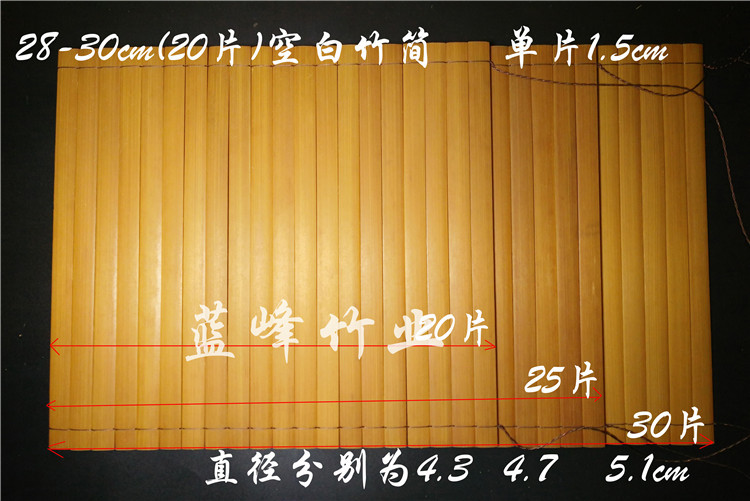 28-30cm(20片)空白竹简 单片1.5cm
蓝峰竹业
20片
25片
30片
直径分别为4.3 4.7 5.1cm